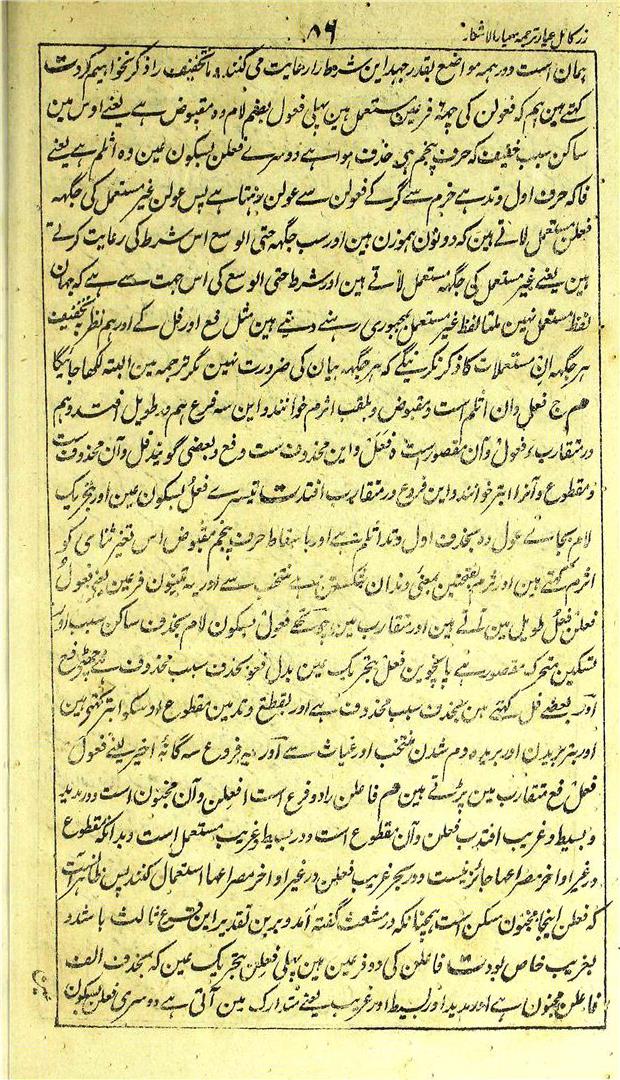 زر کامل عیار ترجمہ معیار الاشعار ۸۶
ہمان است و در ہمہ مواضع بقدر جہد این شروط را رعایت می کنند ما تخفیف را ذکر نخواہیم کرد ت
کہتے ہین ہم کہ فعولن کی چھہ فرعین مستعمل ہین پہلی فعول بضم لام وہ مقبوض ہے یعنے اوس مین
ساکن سبب خفیف کہ حرف پنجم ہی حذف ہوا ہے دوسرے فعلن بسکون عین وہ اثلم ہے یعنے
فا کہ حرف اول وتد ہے خرم سے گر کے فعولن سے عولن رہتا ہے پس عولن غیر مستعمل کی جگہہ
فعلن مستعمل لاتے ہین کہ دونون ہموزن ہین اور سب جگہہ حتی الوسع اس شرط کی رعایت کرتے
ہین یعنے غیر مستعمل کی جگہہ مستعمل لاتے ہین اور شرط حتی الوسع کی اس جہت سے ہے کہ جہان
لفظ مستعمل نہین ملتا لفظ غیر مستعمل بمجبوری رہنے دیتے ہین مثل فع اور فل کے اور ہم نظر بتخفیف
ہر جگہہ ان مستعملات کا ذکر نکرینگے کہ ہر جگہہ بیان کی ضرورت نہین مگر ترجمہ مین البتہ لکھا جائیگا
م ج فعل وان اثلم است و مقبوض و بلقب اثرم خوانند و این سہ فرع ہم در طویل افتد و ہم
در متقارب ء فعول و آن مقصور است ہ فعل و این محذوف ست و فع و بعضی گویند فل و آن محذوف ست
و مقطوع و آنرا ابتر خوانند و این فروع در متقارب افتد ت تیسرے فعل بسکون عین اور بتحریک
لام بجاے عول وہ بحذف اول وتد اثلم ہے اور باسقاط حرف پنجم مقبوض اس تغیر ثنائی کو
اثرم کہتے ہین اور ثرم بفتحتین بمعنی دندان شکستن ہے منتخب سے اور یہ تینون فرعین یعنی فعول
فعلن فعل طویل مین آتے ہین اور متقارب مین چوتھے فعول بسکون لام بحذف ساکن سبب اور
تسکین متحرک مقصور ہے پانچوین فعل بتحریک عین بدل فعو بحذف سبب محذوف ہے چھٹے فع
اور بعضے فل کہتے ہین بحذف سبب محذوف ہے اور بقطع وتد مین مقطوع اوسکو ابتر کہتے ہین
اور بتر بریدن اور بریدہ دم شدن منتخب اور غیاث سے اور یہ فروع سہ گانہ اخیر یعنے فعول
فعل فع متقارب مین پڑتے ہین م فاعلن را دو فرع است ا فعلن و آن مخبون است و در مدید
و بسیط و غریب افتد ب فعلن و آن مقطوع است و در بسیط و غریب مستعمل است و بدانکہ مقطوع
در غیر اواخر مصراعہا جائز نیست و در بحر غریب فعلن در غیر اواخر مصراعہا استعمال کنند پس ظاہر است
کہ فعلن اینجا مخبون مسکن است ہمچنانکہ در مشعث گفتہ آمد و برین تقدیر این فرع ثالث باشد و
بغریب خاص بود ت فاعلن کی دو فرعین ہین پہلی فعلن بتحریک عین کہ بحذف الف
فاعلن مخبون ہے اور مدید اور بسیط اور غریب یعنے متدارک مین آتی ہے دوسری فعلن بسکون
عین